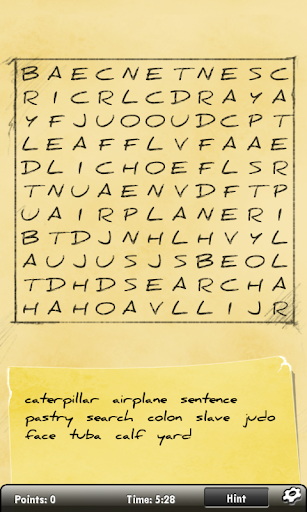 B A E C N E T N E S C
R I C R L C D R A Y A
Y F J U O O U D C P T
L E A F F L V F A A E
D L I C H O E F L S R
T N U A E N V D F T P
U A I R P L A N E R I
B T D J N H L H V Y L
A U J U S J S B E O L
T D H D S E A R C H A
H A H O A V L L I J R
caterpillar airplane sentence
pastry search colon slave judo
face tuba calf yard
Points: 0 Time: 5:28 Hint